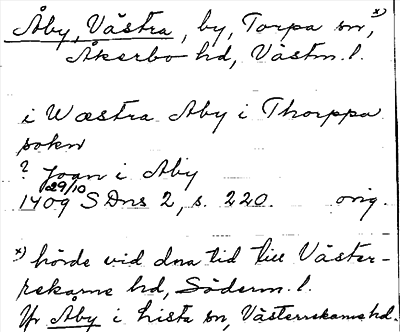 Åby, Västra, by, Torpa sn, x)
Åkerbo hd, Västm. l.
i Wæstra Aby i Thorppa
sokn
? Joan i Aby
29/10
1409 SDns 2, s. 220. orig.
x) hörde vid dna tid till Väster-
rekarne hd, Söderm. l.
Jfr Åby i hista sn, Västerrekarne hd.